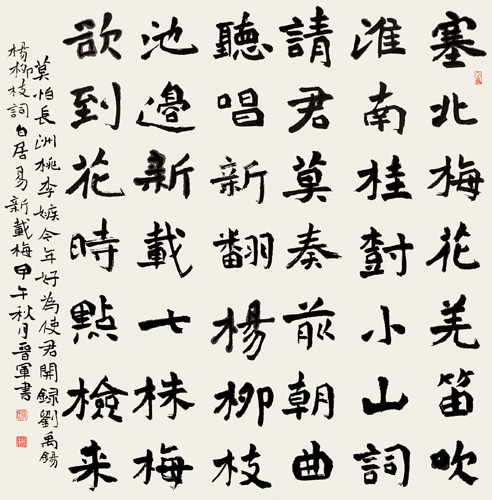 塞北梅花羌笛吹
淮南桂樹小山詞
請君莫奏前朝曲
聽唱新翻楊柳枝
池邊新載七株梅
欲到花時點檢来
莫怕長洲桃李嫉今年好為使君開録劉禹錫
楊柳枝詞白居易新載梅甲午秋月晉軍書